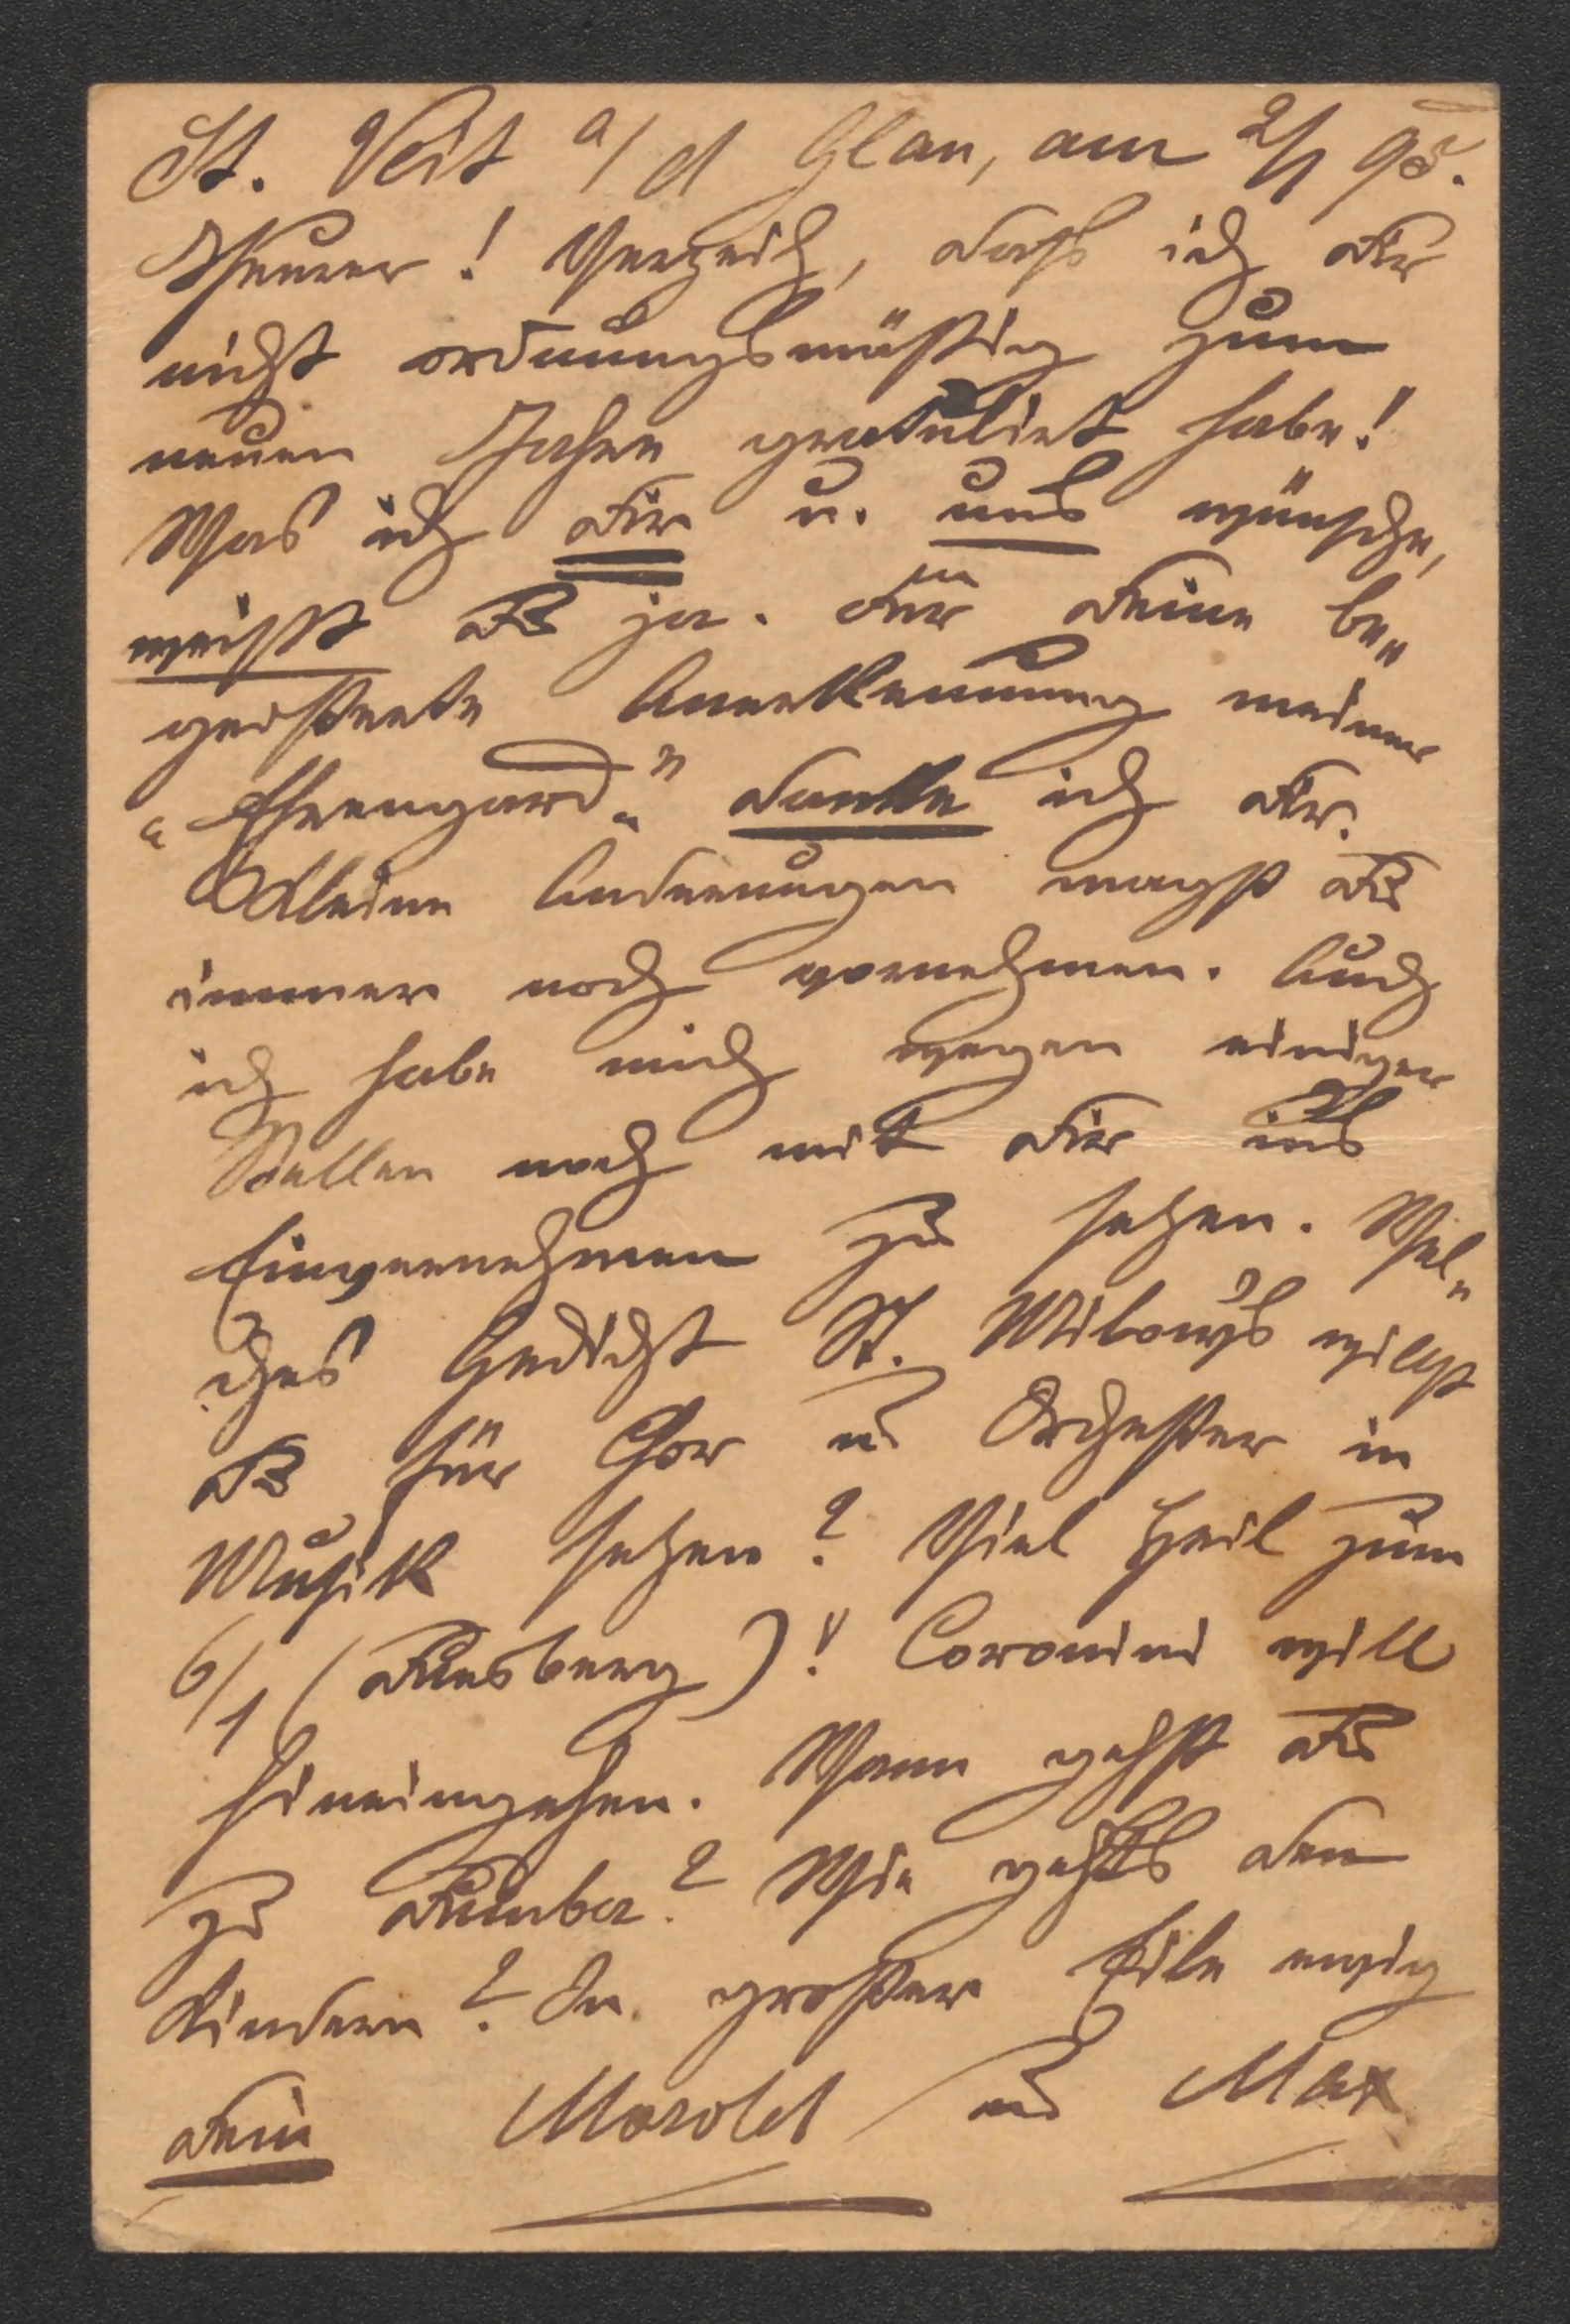 St. Veit a/d Glan, am 2/1 95.
Theurer! Verzeih, dass ich Dir
nicht ordnungsmäßig zum
neuen Jahre gratuliert habe!
Was ich Dir u. uns wünsche,
weißt Du ja. Für Deine be„
geisterte Anerkennung meiner
„Ehrengard“ danke ich Dir.
Kleine Änderungen magst Du
immer noch vornehmen. Auch
ich habe mich wegen einiger
Stellen noch mit Dir ins
Einvernehmen zu setzen. Wel„
ches Gedicht St. Milow's willst
Du für Chor u Orchester in
Musik setzen? Viel Heil zum
6/1 (Duesberg)! Coronini will
hineingehen. Wann gehst Du
zu Dumba? Wie geht's den
Kindern? In großer Eile ewig
Dein Morold u Max